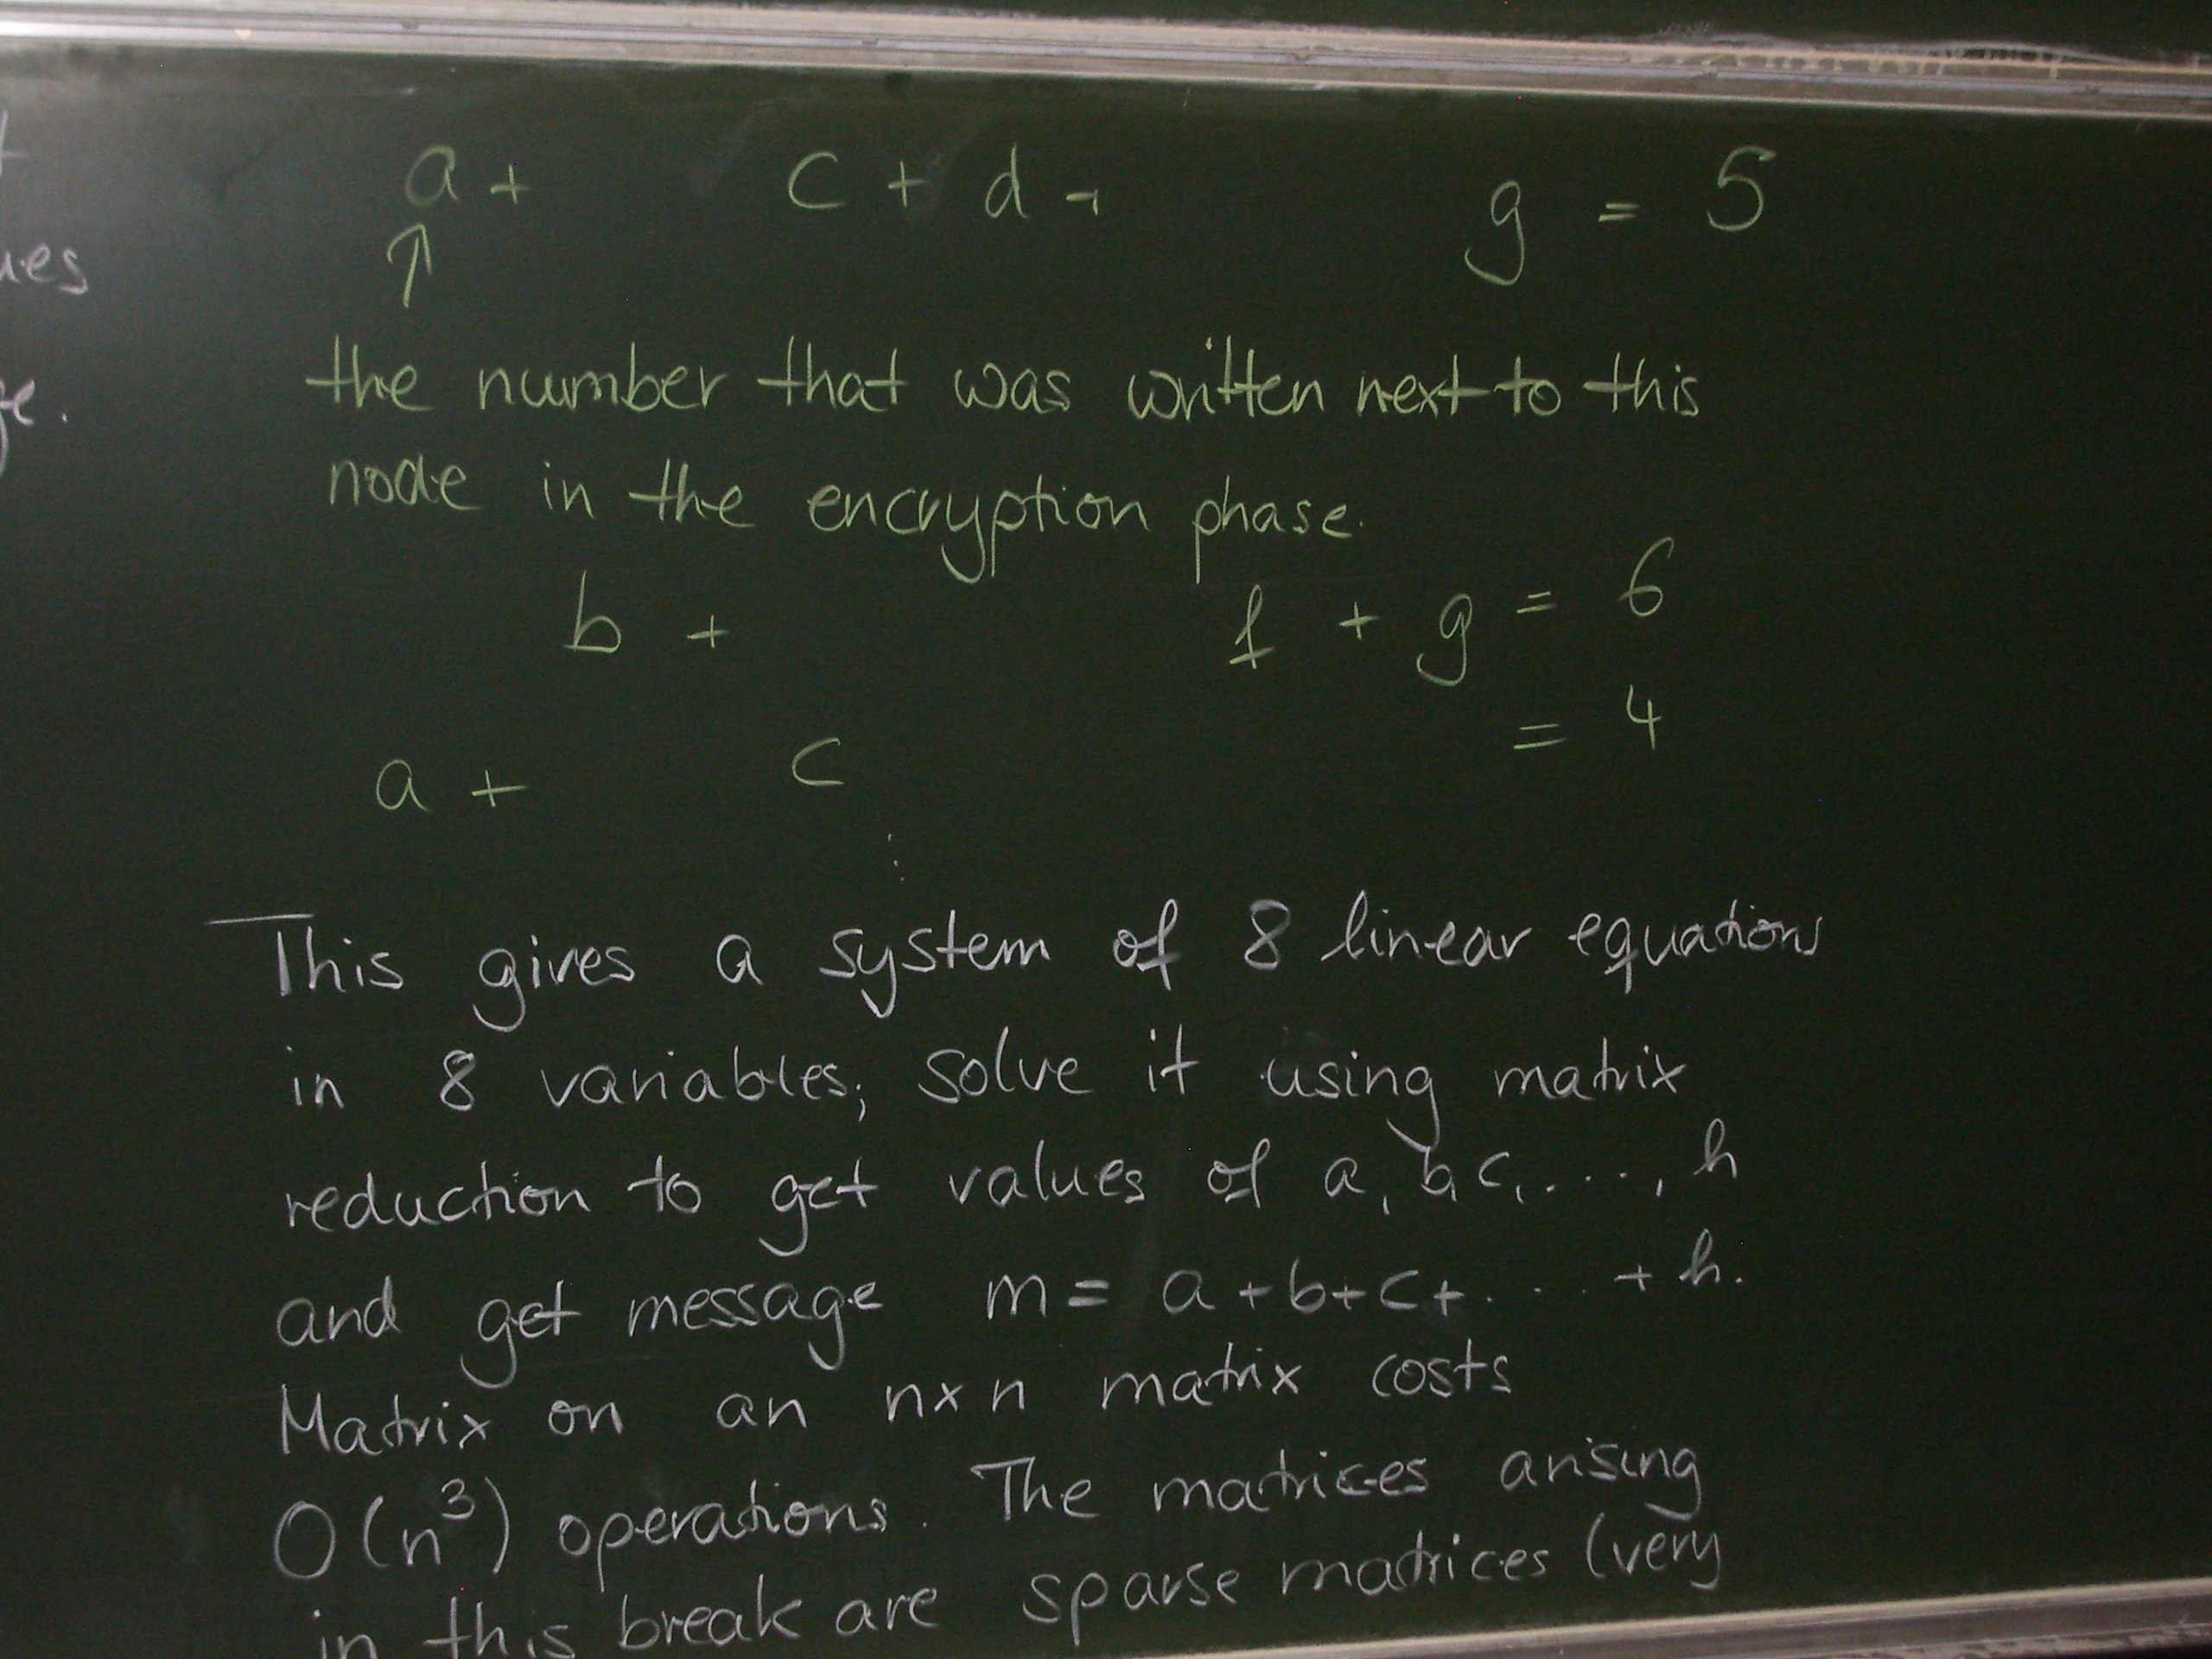 a + c + d + g = 5
↑
the number that was written next to this
node in the encryption phase.
b + f + g = 6
a + c = 4
⋮
This gives a system of 8 linear equations
in 8 variables; solve it using matrix
reduction to get values of a, b, c, ...., h
and get message m = a + b + c + .... + h.
Matrix on an n x n matrix costs
O(n³) operations. The matrices arising
in this break are sparse matrices (very